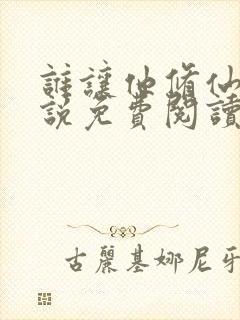 誰讓他脩仙
説免費閱讀
古麗基娜尼牙